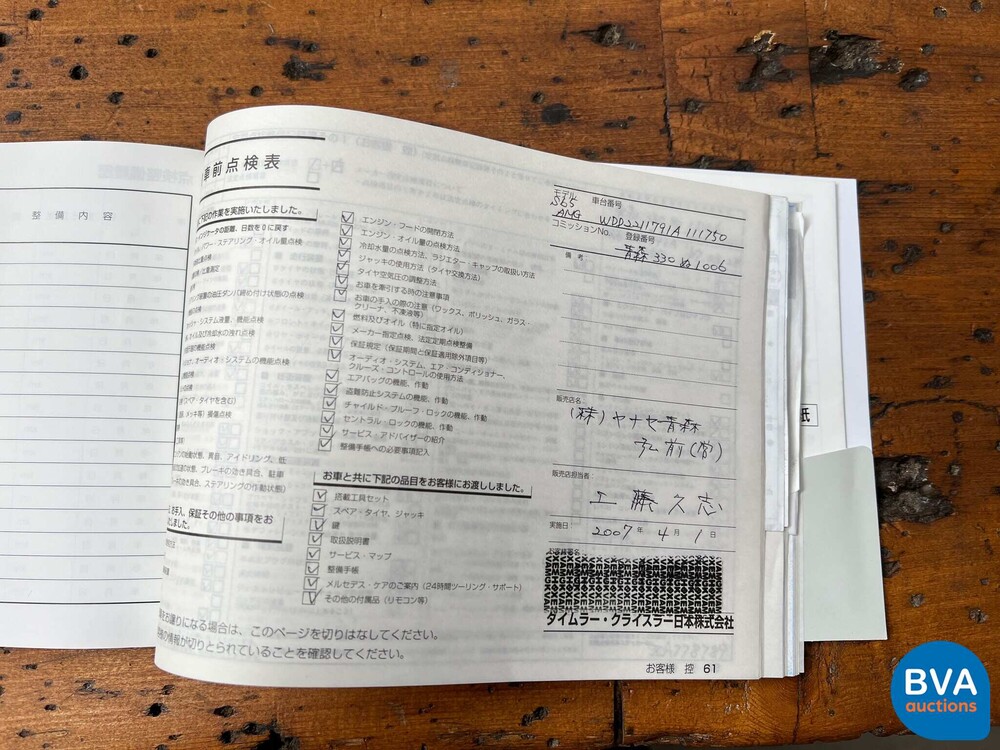 整備内容
車前点検表
下記の作業を実施いたしました。
インジケータの距離、日数を0に戻す
パワー・ステアリング・オイル量点検
システム液量、機能点検
オイル及び冷却水の洩れ点検
オーディオ・システムの機能点検
スペア・タイヤを含む)
メッキ等)損傷点検
の始動状態、異音、アイドリング、低
の状態、ブレーキの効き具合、駐車
ーキの効き具合、ステアリングの作動状態)
お手入、保証その他の事項をお
しました。
エンジン・フードの開閉方法
エンジン・オイル量の点検方法
冷却水量の点検方法、ラジエター・キャップの取扱い方法
ジャッキの使用方法(タイヤ交換方法)
タイヤ空気圧の調整方法
お車を牽引する時の注意事項
お車の手入の際の注意(ワックス、ポリッシュ、ガラス・
クリーナ、不凍液等)
燃料及びオイル(特に指定オイル)
メーカー指定点検、法定定期点検整備
保証規定(保証期間と保証適用除外項目等)
オーディオ・システム、エア・コンディショナー、
クルーズ・コントロールの使用方法
エアバッグの機能、作動
盗難防止システムの機能、作動
チャイルド・プルーフ・ロックの機能、作動
セントラル・ロックの機能、作動
サービス・アドバイザーの紹介
整備手帳への必要事項記入
お車と共に下記の品目をお客様にお渡ししました。
搭載工具セット
スペア・タイヤ、ジャッキ
鍵
取扱説明書
サービス・マップ
整備手帳
メルセデス・ケアのご案内(24時間ツーリング・サポート)
その他の付属品(リモコン等)
お譲りになる場合は、このページを切りはなしてください。
の情報が切りとられていることを確認してください。
モデル 車台番号
S65
AMG WDD2211791A111750
コミッションNo. 登録番号
青森 330 ぬ 1006
備考
販売店名:
(株)ヤナセ青森
弘前(営)
販売店担当者:
工藤久志
実施日
2007年 4月 1日
お客様署名
ダイムラー・クライスラー日本株式会社
お客様 控 61
紙
BVA
auctions